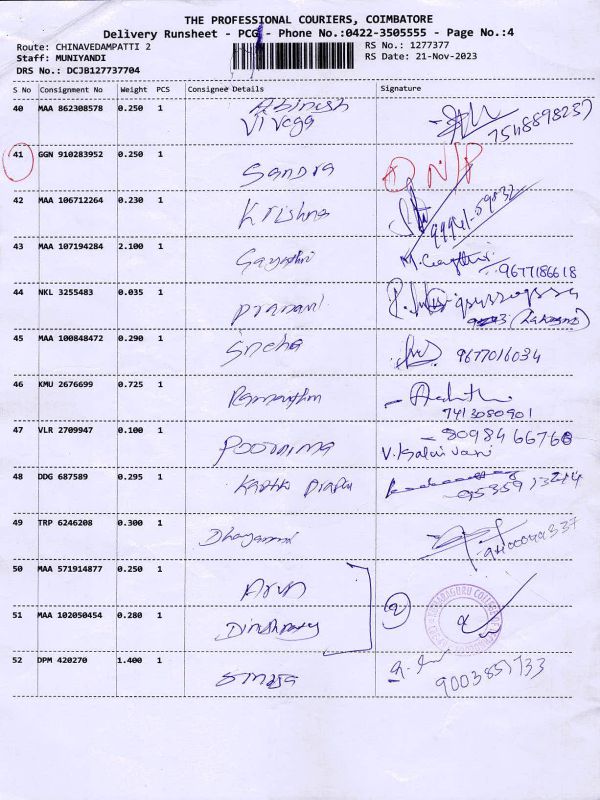 THE PROFESSIONAL COURIERS, COIMBATORE
Delivery Runsheet - PCG - Phone No.:0422-3505555 - Page No.:4
Route: CHINAVEDAMPATTI 2
RS No.: 1277377
Staff: MUNIYANDI
RS Date: 21-Nov-2023
DRS No.: DCJB127737704
S No Consignment No Weight PCS Consignee Details Signature
40 MAA 862308578 0.250 1 Abinesh
Vivega
7548898237
41 GGN 910283952 0.250 1 Sandra N/P
42 MAA 106712264 0.230 1 Krishna
43 MAA 107194284 2.100 1 Gayathri
9677186618
44 NKL 3255483 0.035 1
45 MAA 100848472 0.290 1 Sneha 9677016034
46 KMU 2676699 0.725 1
7413080901
47 VLR 2709947 0.100 1 Poornima 8098466768
V. Kalaivani
48 DDG 687589 0.295 1
49 TRP 6246208 0.300 1
50 MAA 571914877 0.250 1 Arun
2
51 MAA 102050454 0.280 1
52 DPM 420270 1.400 1